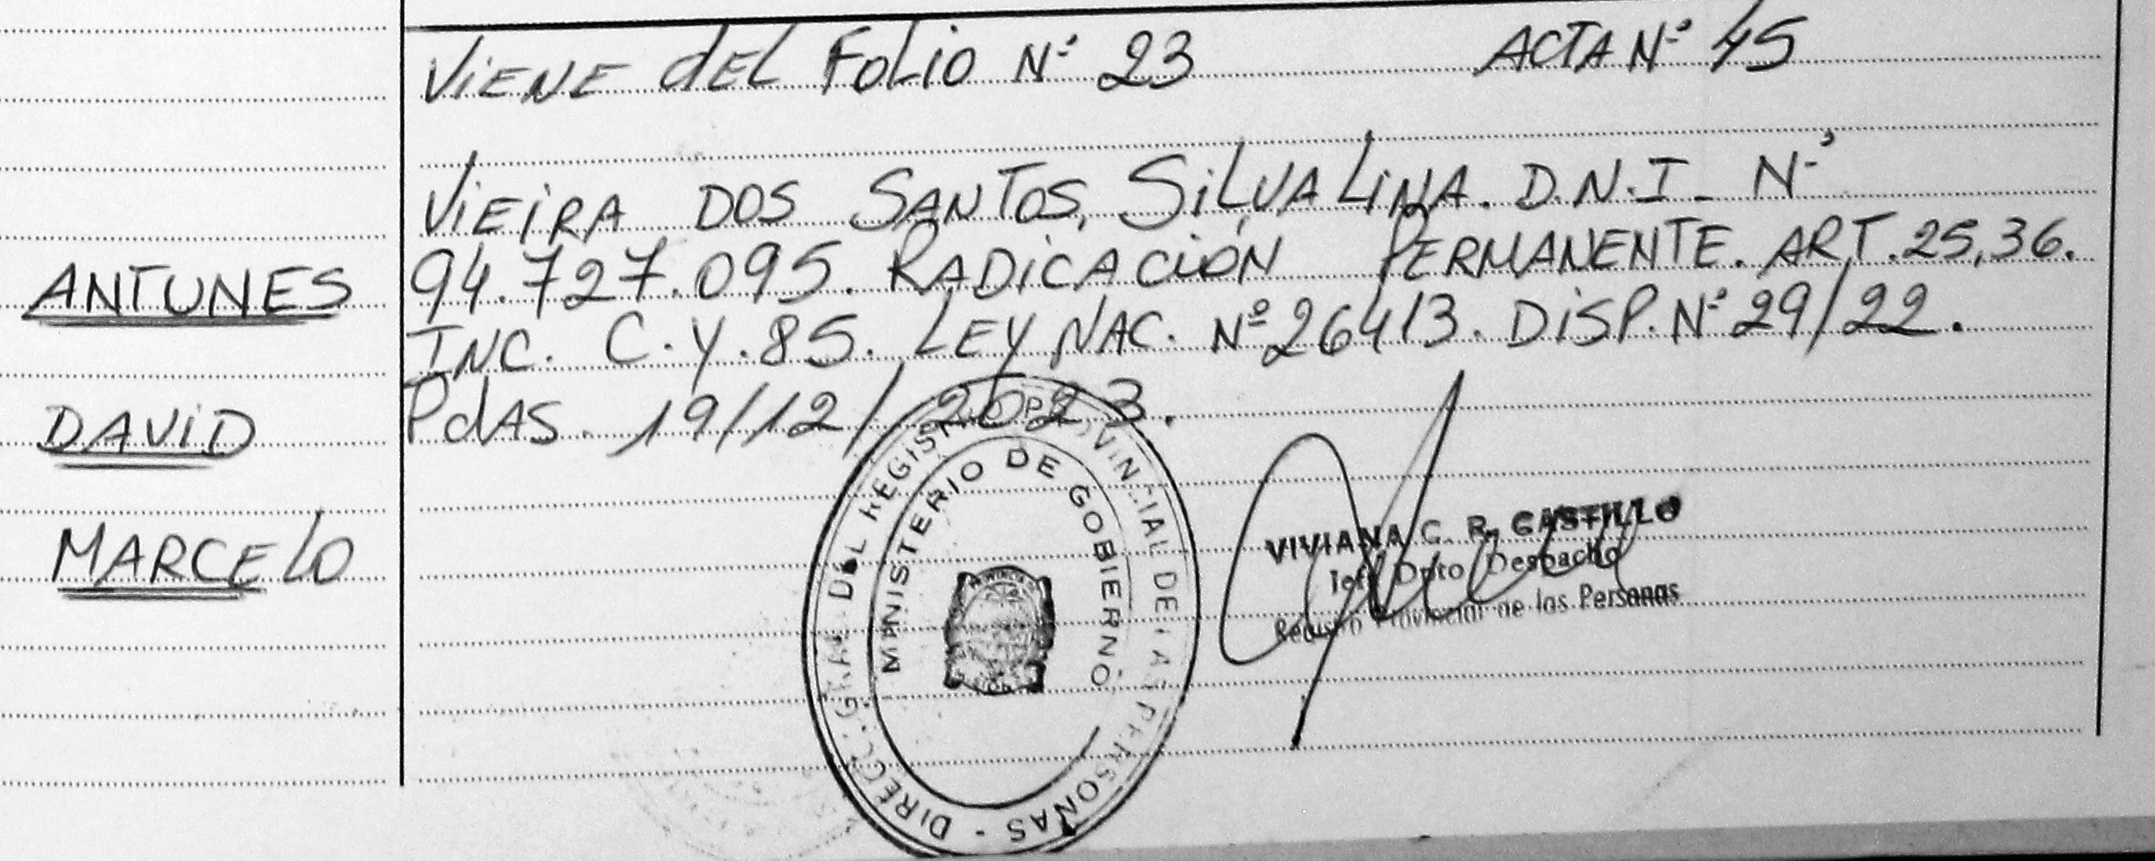 VIENE dEL FOLIO Nº 23 ACTA Nº 45
VIEIRA DOS SANTOS, SILVALINA. D.N.I_ Nº
94.727.095. RADICACIÓN PERMANENTE. ART.25,36.
INC. C.Y.85. LEY NAC. Nº26413. DISP. Nº 29/22.
PdAS. 19/12/2023.
ANTUNES
DAVID
MARCELO
DIRECC. GRAL DEL REGISTRO PROVINCIAL DE LAS PERSONAS -
MINISTERIO DE GOBIERNO
VIVIANA C. R. CASTILLO
Jefe Dpto Despacho
Registro Provincial de las Personas